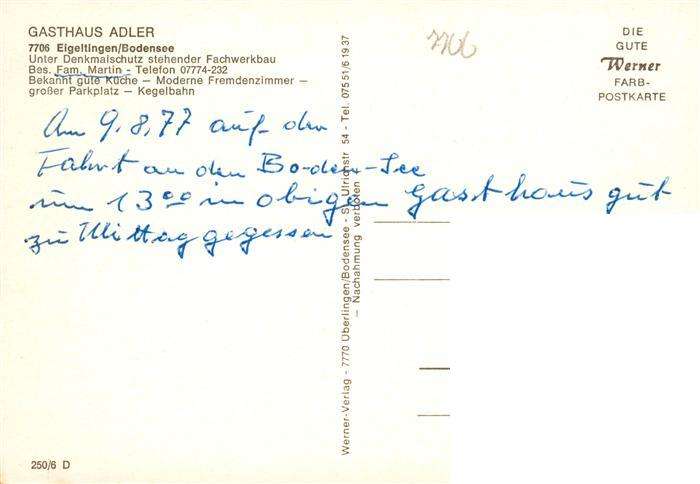 GASTHAUS ADLER
7706 Eigeltingen/Bodensee
Unter Denkmalschutz stehender Fachwerkbau
Bes. Fam. Martin - Telefon 07774-232
Bekannt gute Küche — Moderne Fremdenzimmer —
großer Parkplatz — Kegelbahn
7706
DIE
GUTE
Werner
FARB-
POSTKARTE
Am 9.8.77 auf der
Fahrt an den Boden-See
um 13°° in obigen Gasthaus gut
zu Mittag gegessen
Werner-Verlag - 7770 Überlingen/Bodensee - St.-Ulrichstr. 54 - Tel. 07551/61937
— Nachahmung verboten —
250/6 D